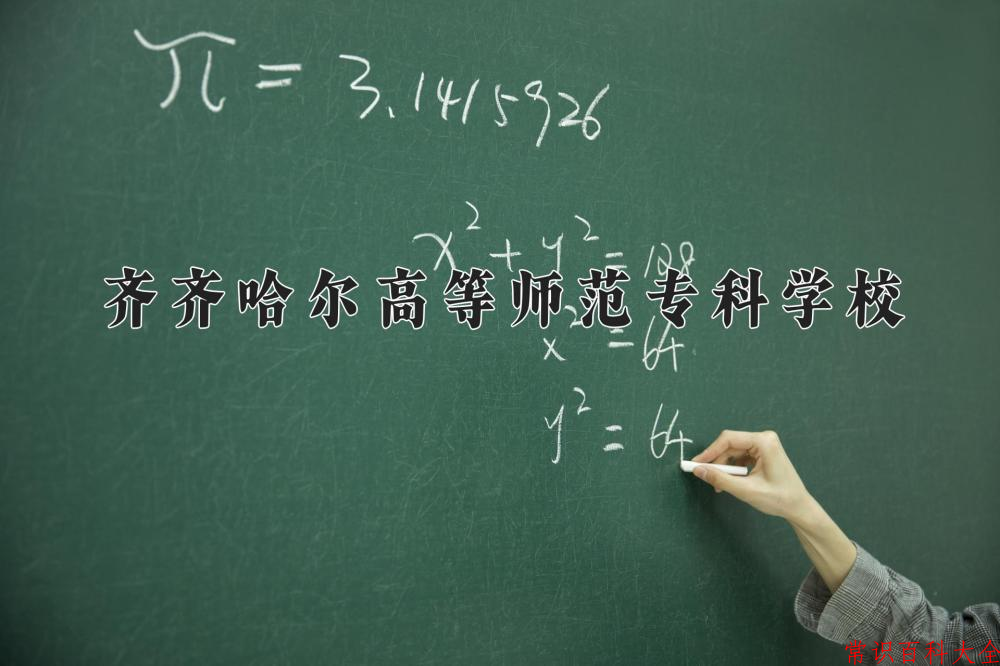 π = 3.1415926
x² + y² = 128
齐齐哈尔高等师范专科学校
x² = 64
y² = 64
常识百科大全